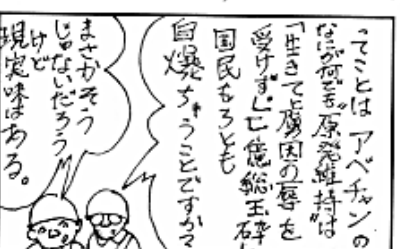 ってことは アベチャンの
なにが何でも"原発維持"は
「生きて虜囚の辱を
受けず」"亡億総玉砕
国民もろとも
自爆ちゅうことですか?
まさかそう
じゃないだろう
けど
現実味はある。